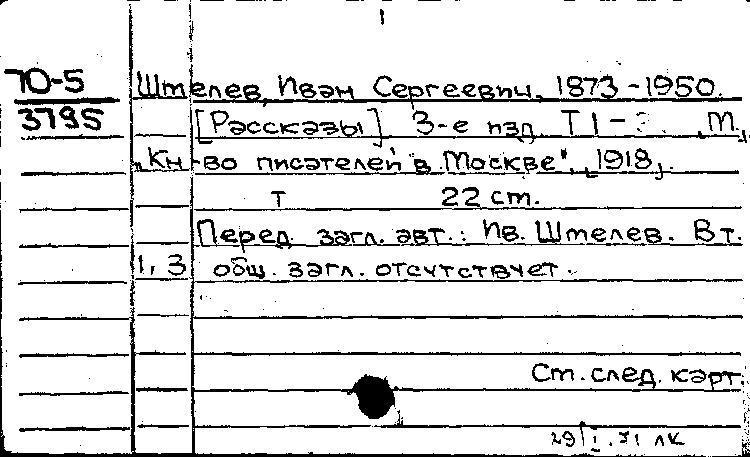 1
70-5 Штелев, Иван Сергеевич, 1873-1950.
3795 [Рассказы]. 3-е изд. Т 1- М.,
„Кн-во писателей в Москве", [1918].
т 22 cm.
Перед. загл. авт.: Ив. Штелев. В т.
1, 3 общ. загл. отсутствует.
Ст. след. карт.
29/I.71 лк